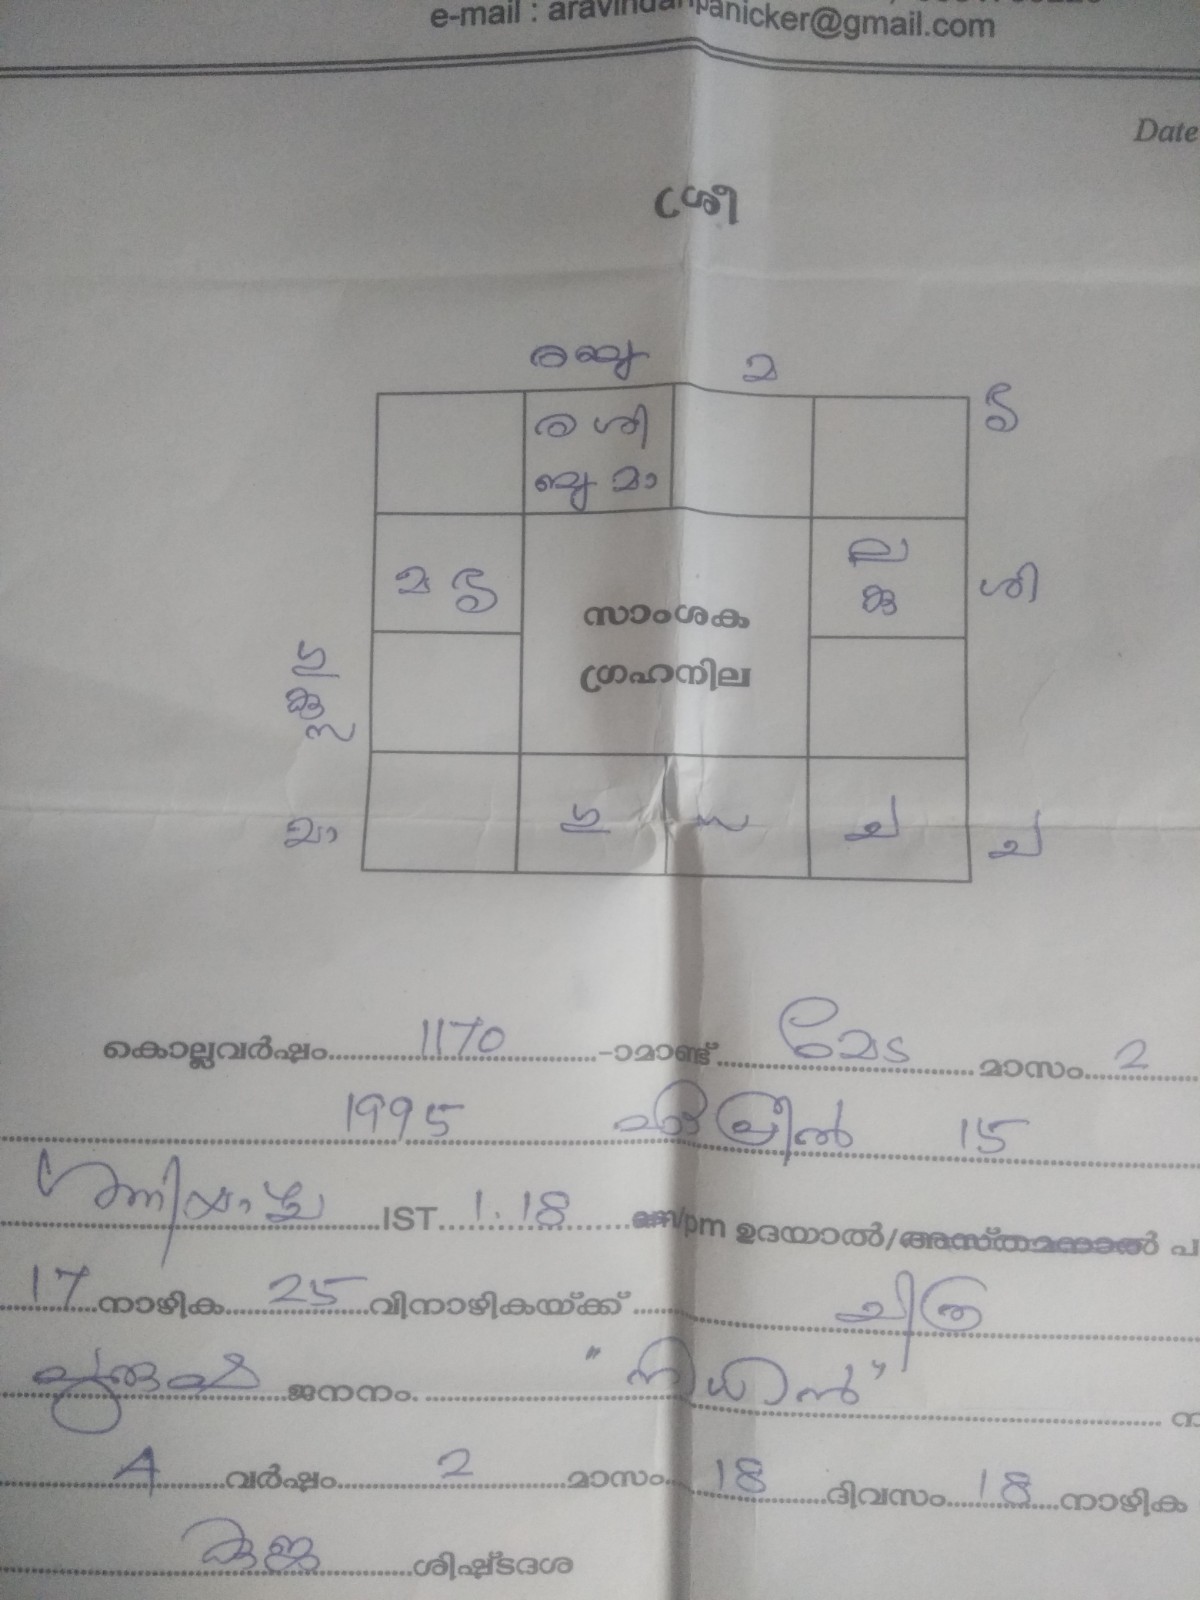 e-mail : aravindanpanicker@gmail.com
Date
ശ്രീ
ര ബു മ
ര ശി ശു
ബു മാ
മ ശു ല ശി
കു
സാംശക
ഗ്രഹനില
ഗു
കു
സ
മാ ഗു സ ച ച
കൊല്ലവർഷം 1170 -ാമാണ്ട് മേട മാസം 2
1995 ഏപ്രീൽ 15
ശനിയാഴ്ച IST 1.18 am/pm ഉദയാൽ/അസ്തമനാൽ പ
17 നാഴിക 25 വിനാഴികയ്ക്ക് ചിത്ര
പുരുഷ ജനനം "നിധിൻ" ന
4 വർഷം 2 മാസം 18 ദിവസം 18 നാഴിക
കുജ ശിഷ്ടദശ